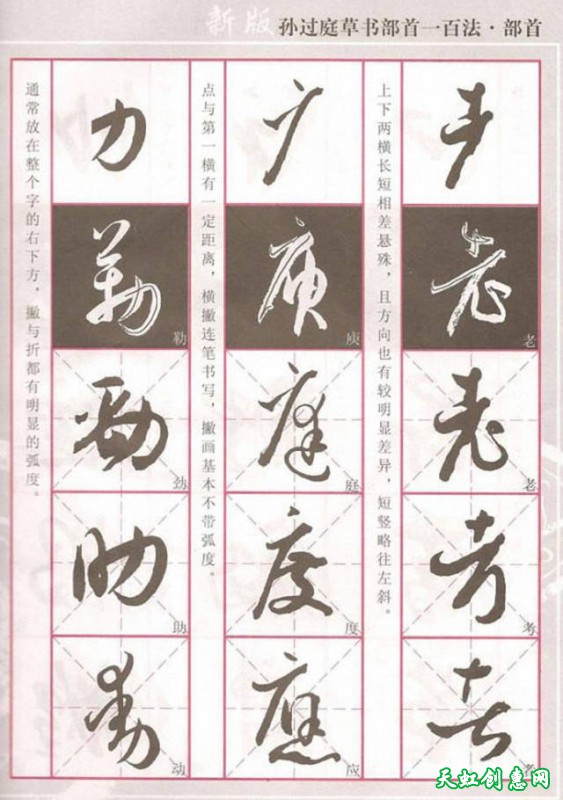 新版 孙过庭草书部首一百法·部首
耂
老
老
考
上下两横长短相差悬殊，且方向也有较明显差异，短竖略往左斜。
广
庭
度
应
点与第一横有一定距离，横撇连笔书写，撇画基本不带弧度。
力
勒
劲
助
动
通常放在整个字的右下方，撇与折都有明显的弧度。
天虹创惠网